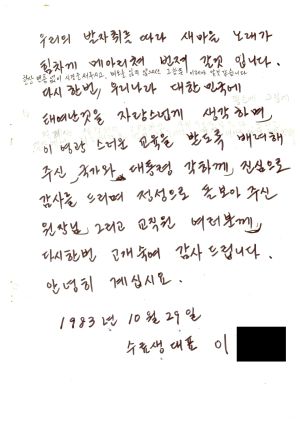 우리의 발자취를 따라 새마을 노래가
힘차게 메아리쳐 번져 갈것 입니다.
다시한번, 우리나라 대한민국에
태어난것을 자랑스럽게 생각하며
이 영광스러운 교육을 받도록 배려해
주신 국가와 대통령 각하께, 진심으로
감사를 드리며 정성으로 돌보아 주신
원장님, 그리고 교직원 여러분께,
다시한번 고개숙여 감사드립니다.
안녕히 계십시요.
1983년 10월 29일
수료생대표 이